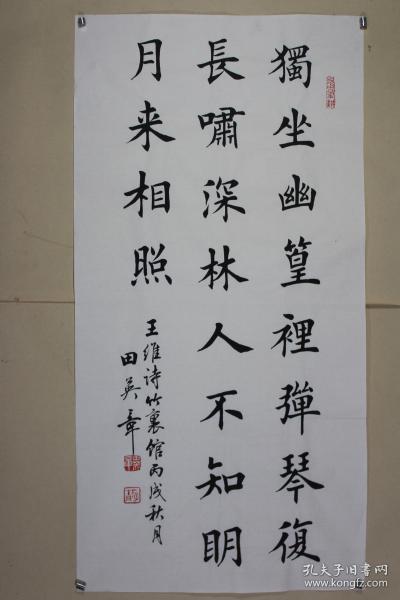 獨坐幽篁裡彈琴復
長嘯深林人不知明
月来相照
王維诗竹裏馆丙戌秋月
田英章
孔夫子旧书网
www.kongfz.com